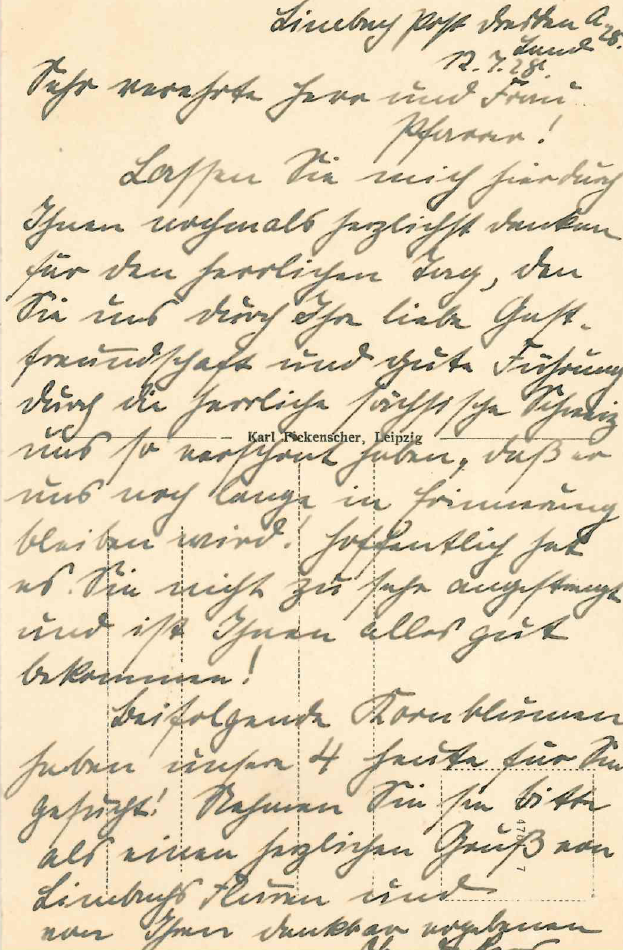 Limbach Post Dresden A. 28.
Land
12.7.28.
Sehr verehrte Herr und Frau
Pfarrer!
Lassen Sie mich hierdurch
Ihnen nochmals herzlichst danken
für den herrlichen Tag, den
Sie uns durch Ihre liebe Gast-
freundschaft und gute Führung
durch die herrliche sächsische Schweiz
Karl Fickenscher, Leipzig
uns so verschönt haben, daß er
uns noch lange in Erinnerung
bleiben wird! Hoffentlich hat
es Sie nicht zu sehr angestrengt
und ist Ihnen alles gut
bekommen!
Beifolgende Kornblumen
haben unsere 4 heute für Sie
gesucht! Nehmen Sie sie bitte
als einen herzlichen Gruß von
Limbachs Fluren und
von Ihren dankbar ergebenen